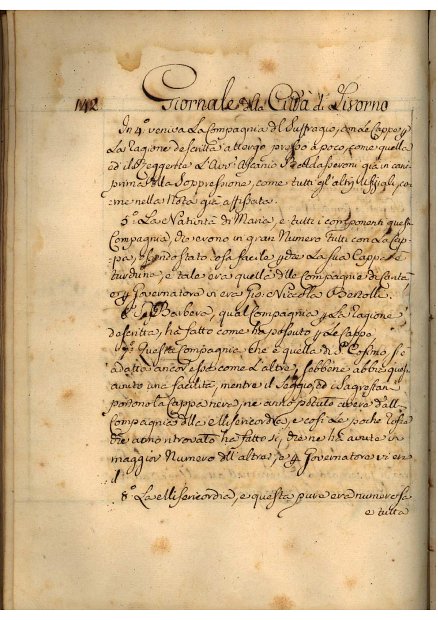 142
Giornale della Città di Livorno
In 4.º veniva La Compagnia del Suffragio, con Le Cappe p
La Ragione descritta a tergo presso à poco, come quella
ed il Reggente L'Avv. Ascanio Baldasseroni già in cari
prima della Soppressione, come tutti gl'altri Ufizj, co
me nella Nota già affissata.
5.º La Natività di Maria, e tutti i componenti questa
Compagnia, vi erono in gran Numero tutti con La Cap
pa, essendo stato cosa facile La sua Cappa è
turchina, e tale era quella delle Compagnie di
e p Governatore vi era Gio: Niccola Bertolli
6.º S. Barbera, qual Compagnia p La Ragione
descritta, hà fatto come hà possuto p Le Cappe
7.º Questa Compagnia, che è quella di S. Cosimo, si è
adatta ancor essa come L'altre, sebbene abbia questa
avuto una facilità, mentre il ed i Lagrestan
portono la Cappa nera, ne anno potuto avere dalla
Compagnia della Misericordia, e così Le poche Teste
che anno trovato hà fatto sì, che ne hà avute in
maggior Numero dell'altre, e p Governatore vi era
il
8.º La Misericordia, e questa pure era numerosa
e tutta